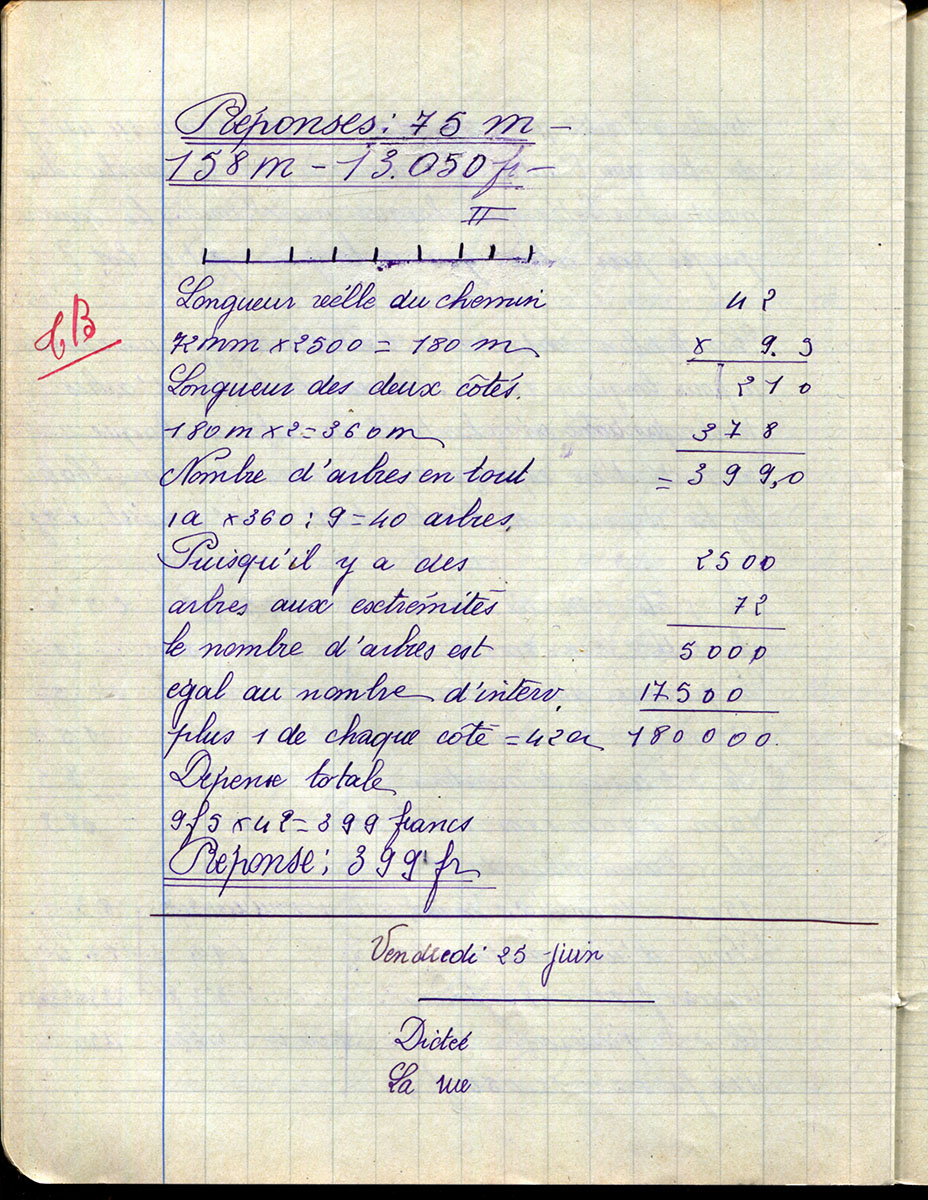 Réponses : 75 m -
158 m - 13.050 fr -
II
Longueur réelle du chemin
72mm x 2500 = 180 m
Longueur des deux côtés.
180 m x 2 = 360 m
Nombre d'arbres en tout
1a x 360 : 9 = 40 arbres.
Puisqu'il y a des
arbres aux extrémités
le nombre d'arbres est
égal au nombre d'interv.
plus 1 de chaque côté = 42a
Dépense totale
9f5 x 42 = 399 francs
Réponse : 399 fr
TB
42
x 9.5
210
378
= 399,0
2500
72
5000
17500
180000.
Vendredi 25 juin
Dictée
La rue